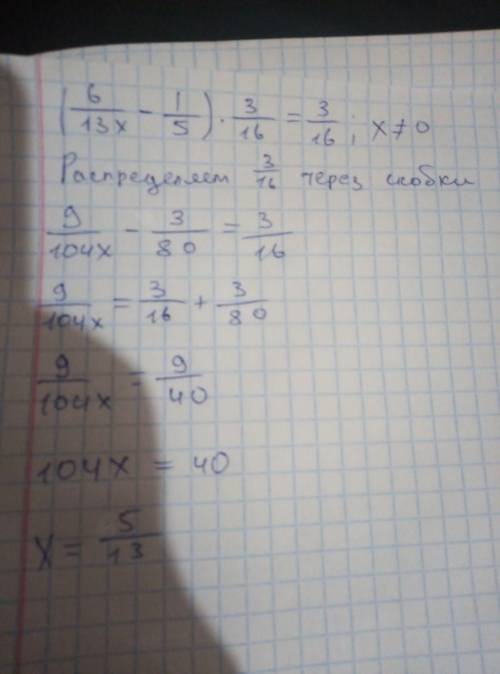 (6/13x - 1/5) · 3/16 = 3/16; x ≠ 0
Распределяем 3/16 через скобки
9/104x - 3/80 = 3/16
9/104x = 3/16 + 3/80
9/104x = 9/40
104x = 40
x = 5/13